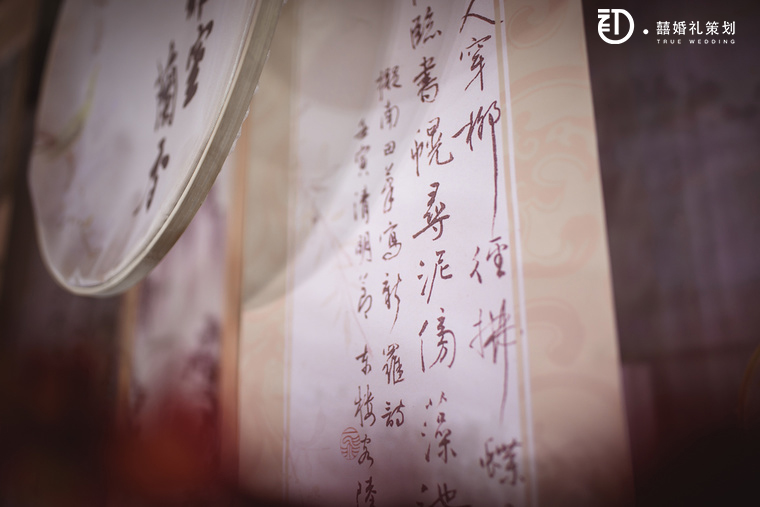 囍婚礼策划
TRUE WEDDING
人穿柳徑拂蝶
臨書幌尋泥傍藻池
擬南田筆寫新羅詩
壬寅清明節東樓客陸
蘭